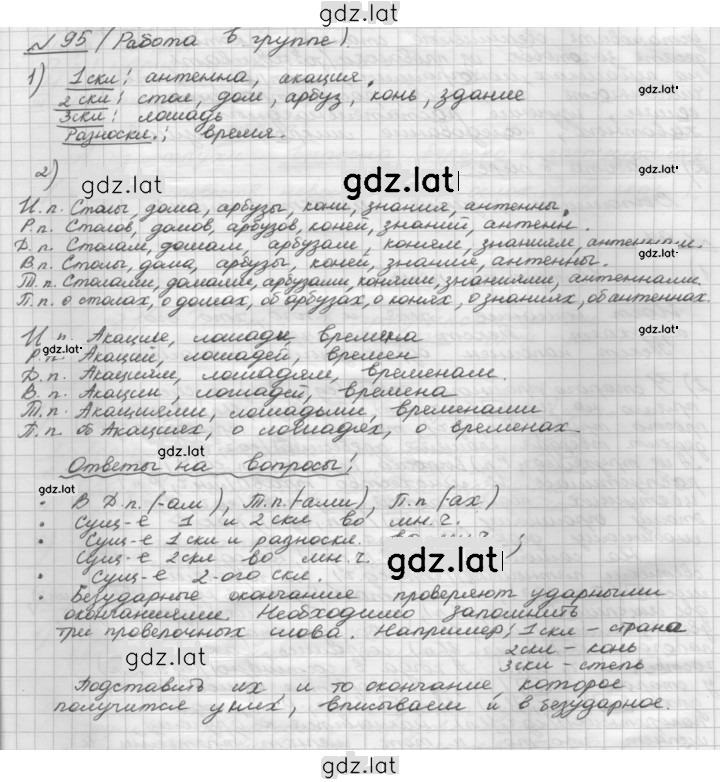 gdz.lat
№ 95 (Работа в группе).
1) 1скл: антенна, акация.
gdz.lat
2скл: стол, дом, арбуз, конь, здание
3скл: лошадь
gdz.lat
Разноскл.: время.
2)
gdz.lat
gdz.lat
gdz.lat
И.п. Столы, дома, арбузы, кони, знания, антенны.
Р.п. Столов, домов, арбузов, коней, знаний, антенн.
Д.п. Столам, домам, арбузам, коням, знаниям, антеннам.
gdz.lat
В.п. Столы, дома, арбузы, коней, знания, антенны.
Т.п. Столами, домами, арбузами, конями, знаниями, антеннами.
П.п. о столах, о домах, об арбузах, о конях, о знаниях, об антеннах.
И.п. Акации, лошади, времена
gdz.lat
gdz.lat
Р.п. Акаций, лошадей, времен
Д.п. Акациям, лошадям, временам.
В.п. Акации, лошадей, времена
Т.п. Акациями, лошадьми, временами
П.п. об Акациях, о лошадях, о временах.
gdz.lat
Ответы на вопросы:
gdz.lat
• В Д.п. (-ам), Т.п. (-ами), П.п. (-ах)
• Сущ-е 1 и 2скл во мн.ч.
• Сущ-е 1скл и разноскл. во мн.ч.;
Сущ-е 2скл во мн.ч.
gdz.lat
• Сущ-е 2-ого скл.
• Безударные окончания проверяют ударными
окончаниями. Необходимо запомнить
три проверочных слова. Например: 1скл - страна
2скл - конь
3скл - степь
gdz.lat
Подставить их, и то окончание, которое
получится у них, вписываем и в безударное.
gdz.lat